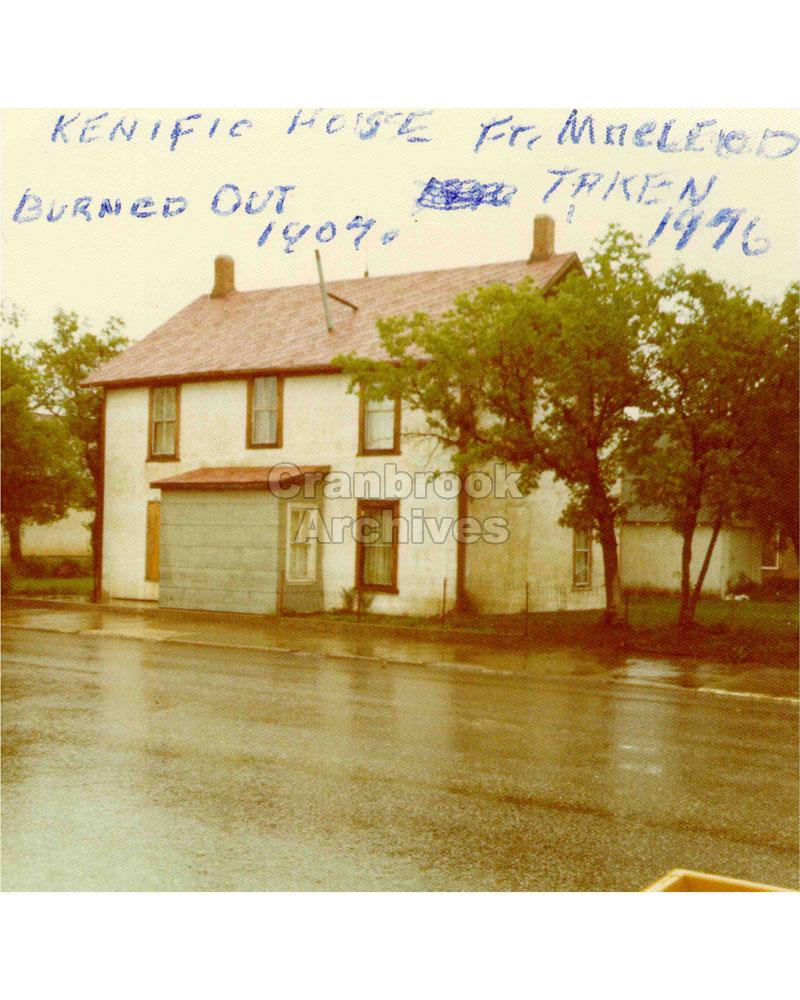 KENIFIC HOUSE Ft. MacLEOD
BURNED OUT TAKEN
1907. 1976
Cranbrook
Archives